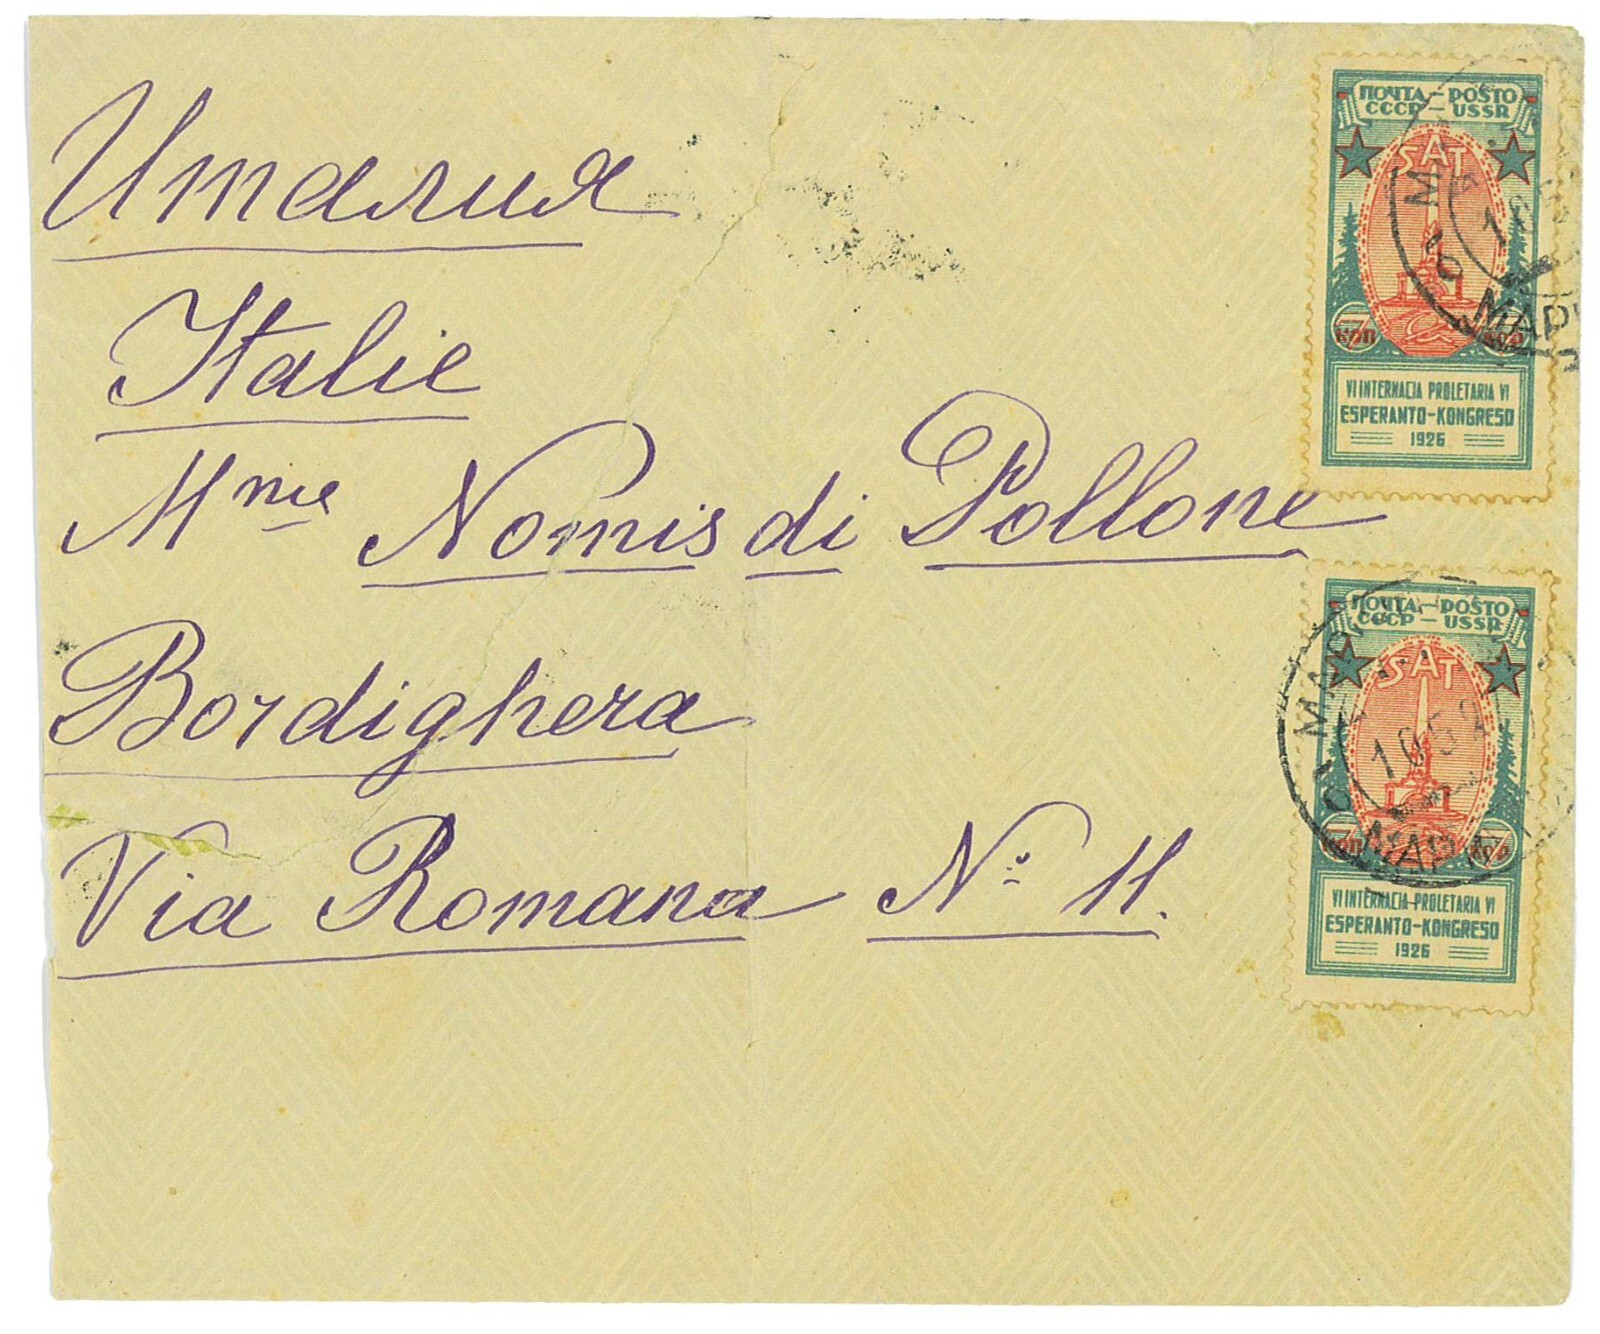 Италия
Italie
Mme Nomis di Pollone
Bordighera
Via Romana No 11.
ПОЧТА - POŜTO
СССР - USSR
SAT
7 КОП
VI INTERNACIA PROLETARIA VI
ESPERANTO-KONGRESO
1926
ПОЧТА - POŜTO
СССР - USSR
SAT
7 КОП
VI INTERNACIA PROLETARIA VI
ESPERANTO-KONGRESO
1926